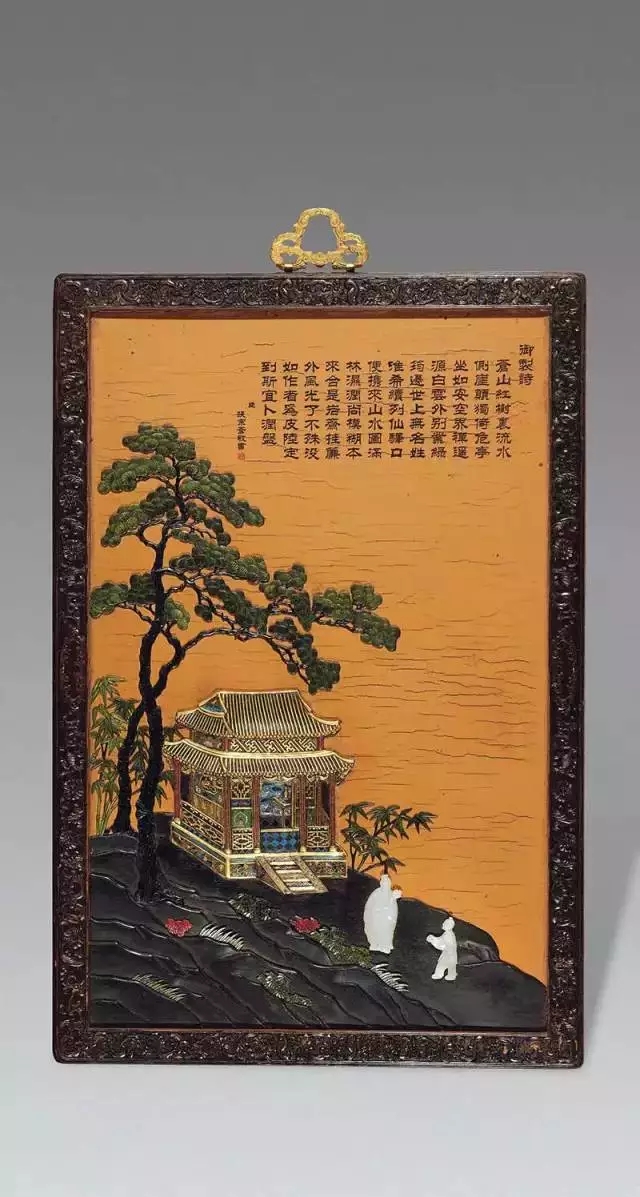 御製詩
蒼山紅樹裏流水
側崖顛獨倚危亭
坐如安空界禪還
源白雲外別業綠
筠邊世上無名姓
惟希續列仙驛口
便攜來山水圖滿
林濕潤尚模糊本
來合是岩齋挂簾
外風光了不殊没
如作者爲皮陸定
到斯宜卜澗盤
敬書